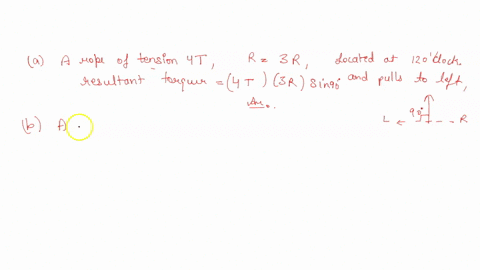 (a) A rope of tension 4T, R = 3R, located at 120'clock.
resultant torque = (4T) (3R) Sin90° and pulls to left,
Ans.
90°
L R
(b) A